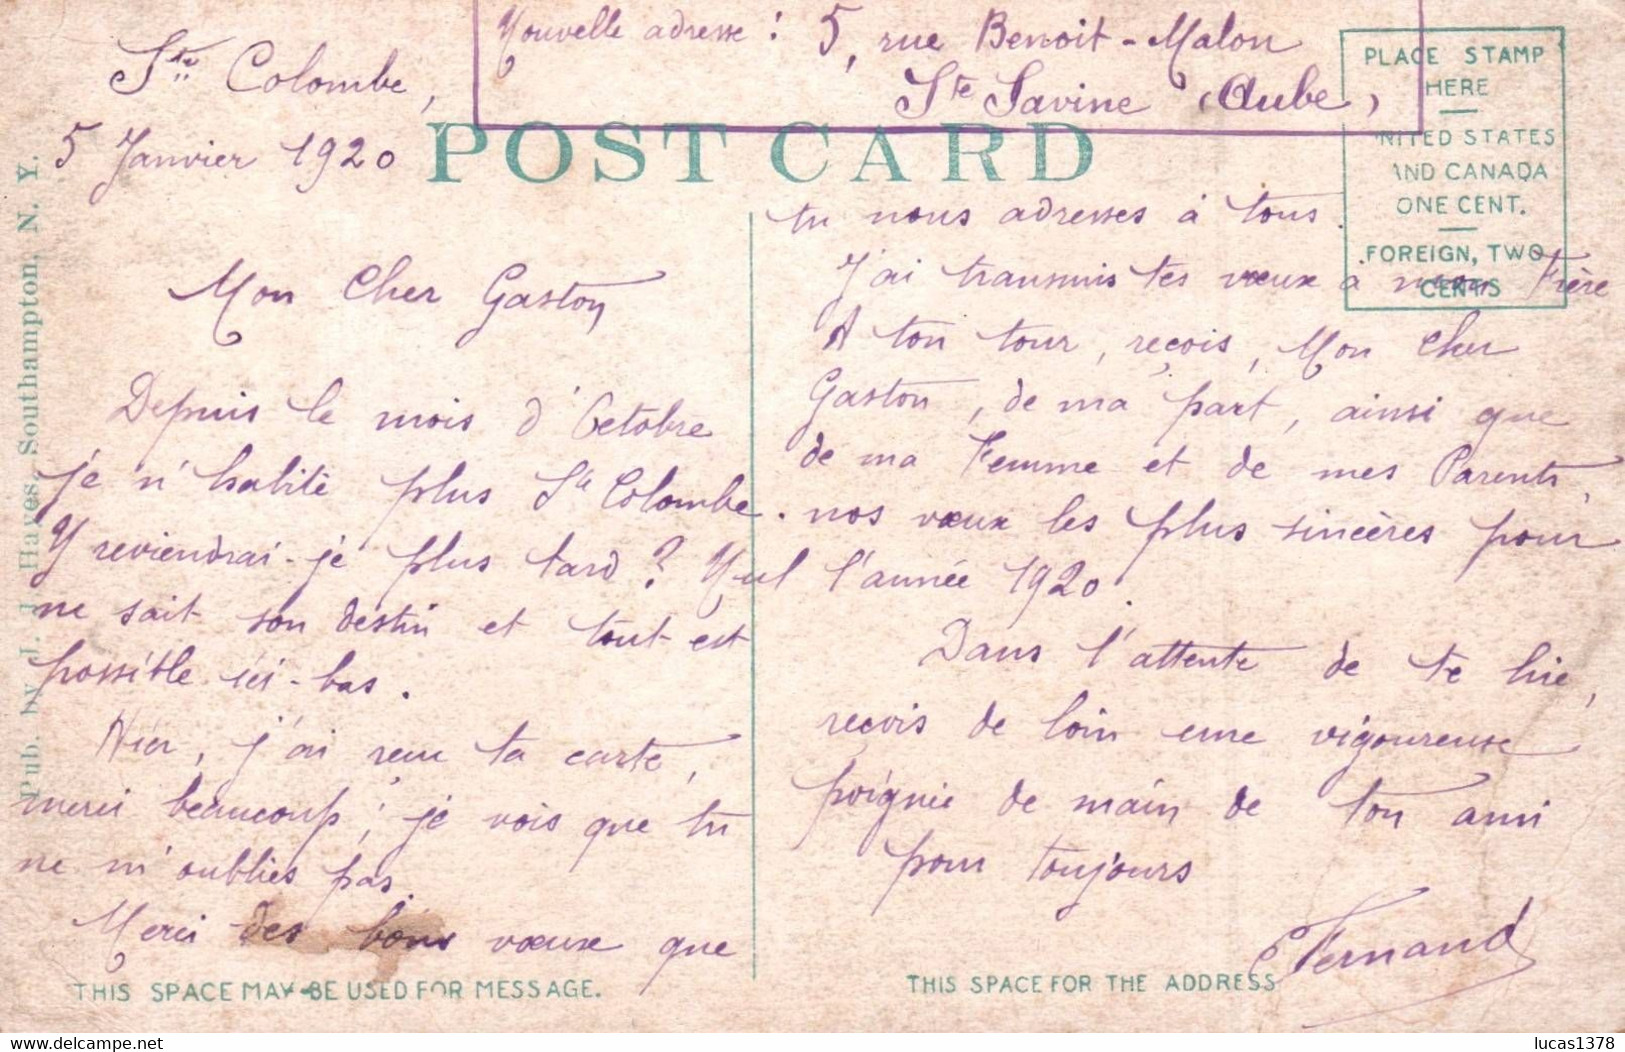 Nouvelle adresse : 5, rue Benoit-Malon
Ste Savine (Aube)
Ste Colombe,
5 Janvier 1920
POST CARD
PLACE STAMP
HERE
UNITED STATES
AND CANADA
ONE CENT.
FOREIGN, TWO
CENTS
Pub. by J. J. Hayes, Southampton, N. Y.
Mon Cher Gaston
Depuis le mois d'Octobre
je n'habite plus Ste Colombe.
Y reviendrai-je plus tard ? Nul
ne sait son destin et tout est
possible ici-bas.
Hier, j'ai reçu ta carte,
merci beaucoup ; je vois que tu
ne m'oublies pas.
Merci des bons vœux que
tu nous adresses à tous.
J'ai transmis tes vœux à mon Frère
A ton tour, reçois, Mon Cher
Gaston, de ma part, ainsi que
de ma Femme et de mes Parents,
nos vœux les plus sincères pour
l'année 1920.
Dans l'attente de te lire,
reçois de loin une vigoureuse
poignée de main de ton ami
pour toujours
Fernand
THIS SPACE MAY BE USED FOR MESSAGE.
THIS SPACE FOR THE ADDRESS
delcampe.net
lucas1378